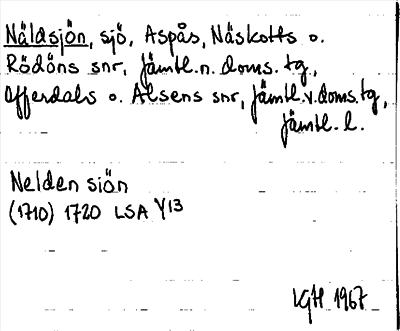 Näldsjön, sjö, Aspås, Näskotts o.
Rödöns snr, Jämtl.n. doms.tg,
Offerdals o. Alsens snr, Jämtl.v.doms.tg,
Jämtl. l.
Nelden siön
(1710) 1720 LSA Y13
LGH 1967